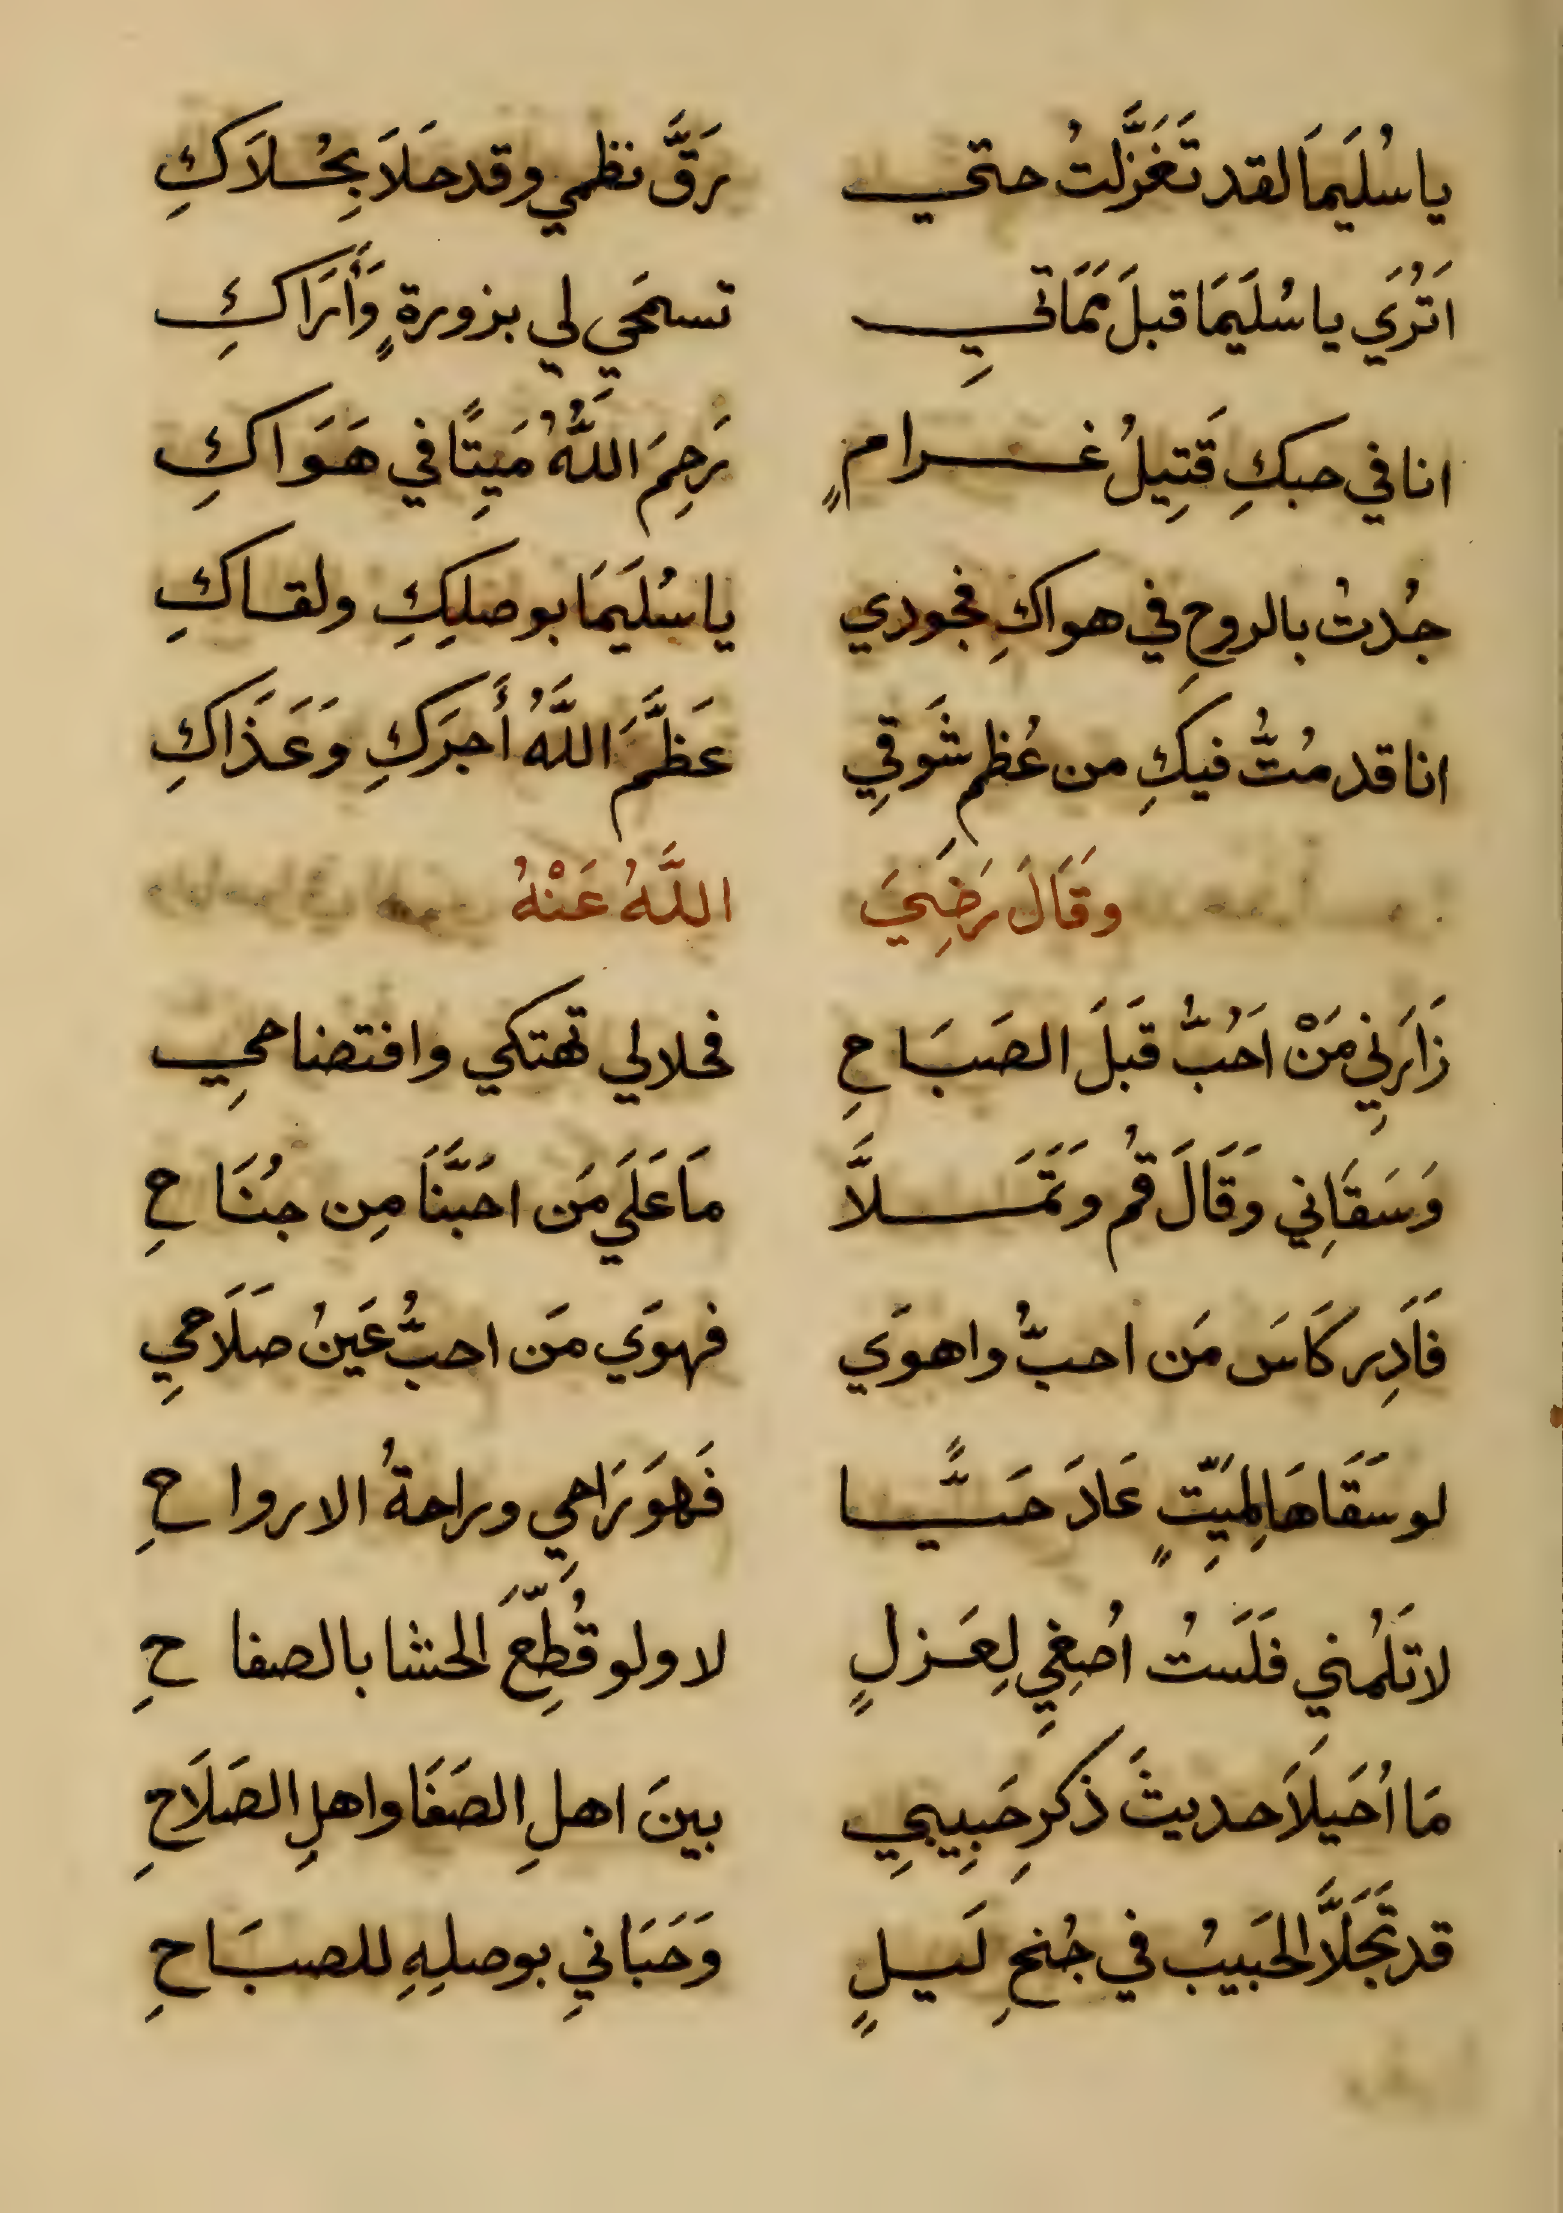 يا سُلَيمَا لقد تَغَزَّلتُ حتي رَقَّ نظمي وقد حَلَا بِحُلَاكِ
اَتُرَي يا سُلَيمَا قبلَ مَمَاتي تسمَحي لي بزورةٍ وَأَرَاكِ
انا في حبكِ قَتِيلُ غرامٍ رَحِمَ اللَّهُ مَيِتًا في هَوَاكِ
جُدتُ بالروحِ في هواكِ فجودي يا سُلَيمَا بوصلِكِ ولقاكِ
انا قد مُتُّ فيكِ من عُظمِ شَوقِي عَظَّمَ اللَّهُ أَجرَكِ وَعَذَاكِ
وقَالَ رَضِيَ اللَّهُ عَنْهُ
زَارَنِي مَنْ اَحُبُّ قَبلَ الصَبَاحِ فحلالي تهتكي وافتضاحيِ
وَسَقَانِي وَقَالَ قُم وَتَمَلَّا مَا عَلَي مَن احَبَّنَا مِن جُنَاحِ
فَاَدِر كَاسَ مَن احبُّ واهوَي فهوَي مَن احبُّ عَينُ صَلَاحيِ
لو سَقَاهَا لِمَيِّتٍ عَادَ حَيًّا فَهوَ رَاحيِ وراحةُ الارواحِ
لا تَلُمني فَلَستُ اُصغِي لِعَزلٍ لا ولو قُطِّعَ الحشا بالصفاحِ
مَا اُحَيلَا حديثَ ذكرِ حَبِيبيِ بينَ اهلِ الصَفَا واهلِ الصَلَاحِ
قد تَجَلَّا الحَبيبُ في جُنحِ لَيلٍ وَحَبَانيِ بوصلِهِ للصبَاحِ